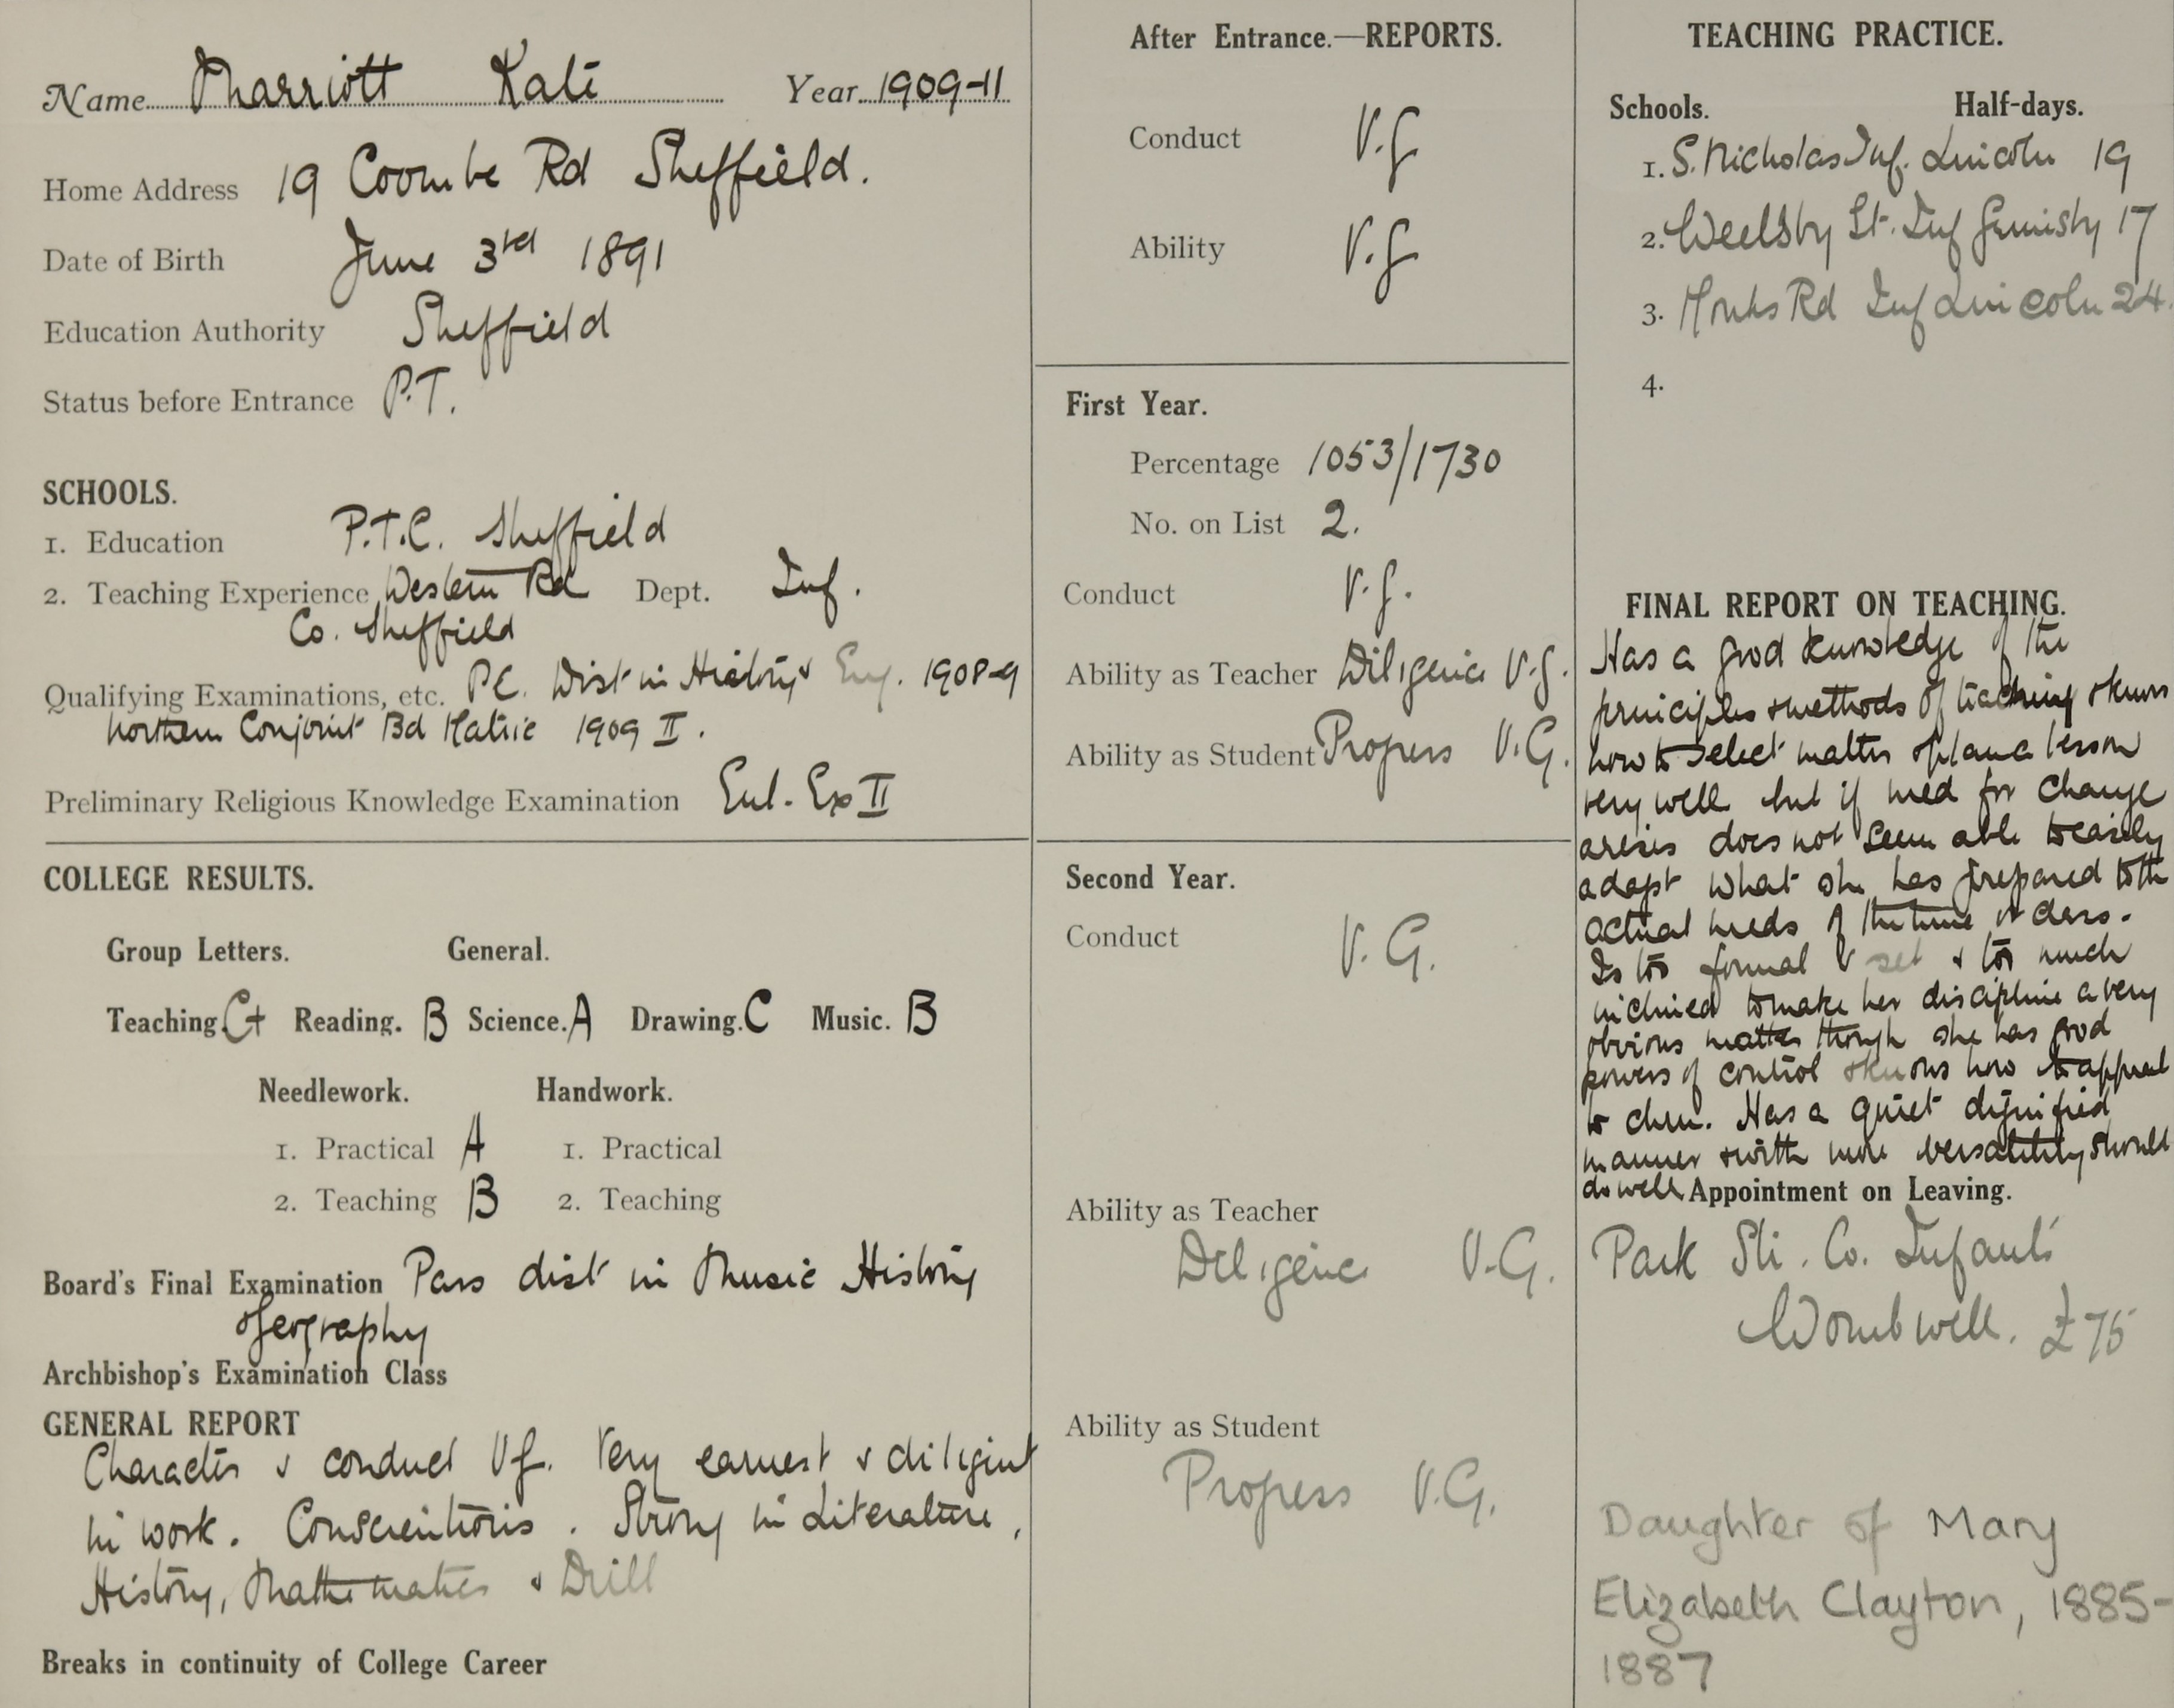 Name Marriott Kate Year 1909-11
Home Address 19 Coombe Rd Sheffield.
Date of Birth June 3rd 1891
Education Authority Sheffield
Status before Entrance P.T.
SCHOOLS.
1. Education P.T.C. Sheffield
2. Teaching Experience Western Rd Dept. Inf.
Co. Sheffield
Qualifying Examinations, etc. P.E. Dist in History & Eng. 1908-9
Northern Conjoint Bd Matric 1909 II.
Preliminary Religious Knowledge Examination Ent. Ex II
COLLEGE RESULTS.
Group Letters. General.
Teaching. C+ Reading. B Science. A Drawing. C Music. B
Needlework. Handwork.
1. Practical A 1. Practical
2. Teaching B 2. Teaching
Board's Final Examination Pass dist in Music History
& Geography
Archbishop's Examination Class
GENERAL REPORT
Character & conduct V.G. Very earnest & diligent
in work. Conscientious. Strong in Literature,
History, Mathematics & Drill
Breaks in continuity of College Career
After Entrance.—REPORTS.
Conduct V.G
Ability V.G
First Year.
Percentage 1053/1730
No. on List 2.
Conduct V.G.
Ability as Teacher Diligence V.G.
Ability as Student Progress V.G.
Second Year.
Conduct V.G.
Ability as Teacher
Diligence V.G.
Ability as Student
Progress V.G.
TEACHING PRACTICE.
Schools. Half-days.
1. S. Nicholas Inf. Lincoln 19
2. Weelsby St. Inf Grimsby 17
3. Monks Rd Inf Lincoln 24.
4.
FINAL REPORT ON TEACHING.
Has a good knowledge of the
principles & methods of teaching & knows
how to select matter & plan a lesson
very well but if need for change
arises does not seem able to easily
adapt what she has prepared to the
actual needs of the time or class.
Is too formal & set & too much
inclined to make her discipline a very
obvious matter though she has good
powers of control & knows how to appeal
to chn. Has a quiet dignified
manner & with more versatility should
do well
Appointment on Leaving.
Park St. Co. Infants'
Wombwell. £75
Daughter of Mary
Elizabeth Clayton, 1885-
1887